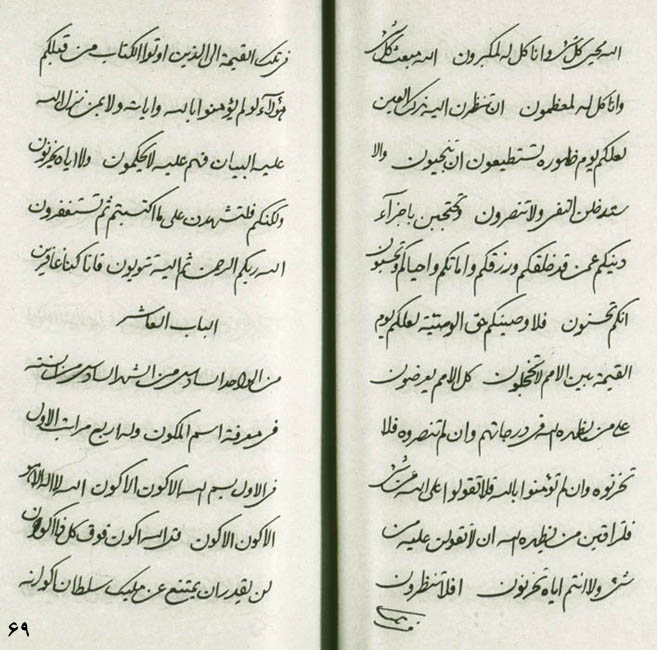 الله يحيي كلشئ وانا كل له لمكبرون الله مبعث كلشئ
وانا كل له لمعظمون ان تنظرن اليه بذلك العين
لعلكم يوم ظهوره تستطيعون ان تنجيون والا
ستدخلن النفر ولا تنصرون وتحتجبن باجزآء
دينكم عمن قد خلقكم ورزقكم واماتكم واحياكم وتحسبون
انكم تحسنون فلاوصينكم حق الوصية لعلكم يوم
القيمة بين الامم لا تخجلون كل الامم يعرضون
على من يظهره الله في درجاتهم وان لم تنصروه فلا
تحزنوه وان لم تؤمنوا بالله فلا تقولوا على الله من شئ
فلتراقبن من يظهره الله ان لا تقولن عليه من
شئ ولا انتم اياه تحزنون افلا تنظرون
في تلك القيمة الى الذين اوتوا الكتاب من قبلكم
هؤلاء لو لم يؤمنوا بالله واياته ولا بمن نزل الله
عليه البيان فهم عليه لا يحكمون ولا اياه يحزنون
ولكنكم فلتشهدن على ما اكتسبتم ثم تستغفرون
الله ربكم الرحمن ثم اليه تتوبون فانا كنا غافرين
الباب العاشر
من الواحد السادس من الشهر السادس من السنة
في معرفة اسم المكون وله اربع مراتب الاول
في الاول بسم الله الاكون الاكون الله لا اله الا هو
الاكون الاكون قل الله اكون فوق كل ذا اكوان
لن يقدر ان يمتنع عن مليك سلطان اكوانه
۶۹